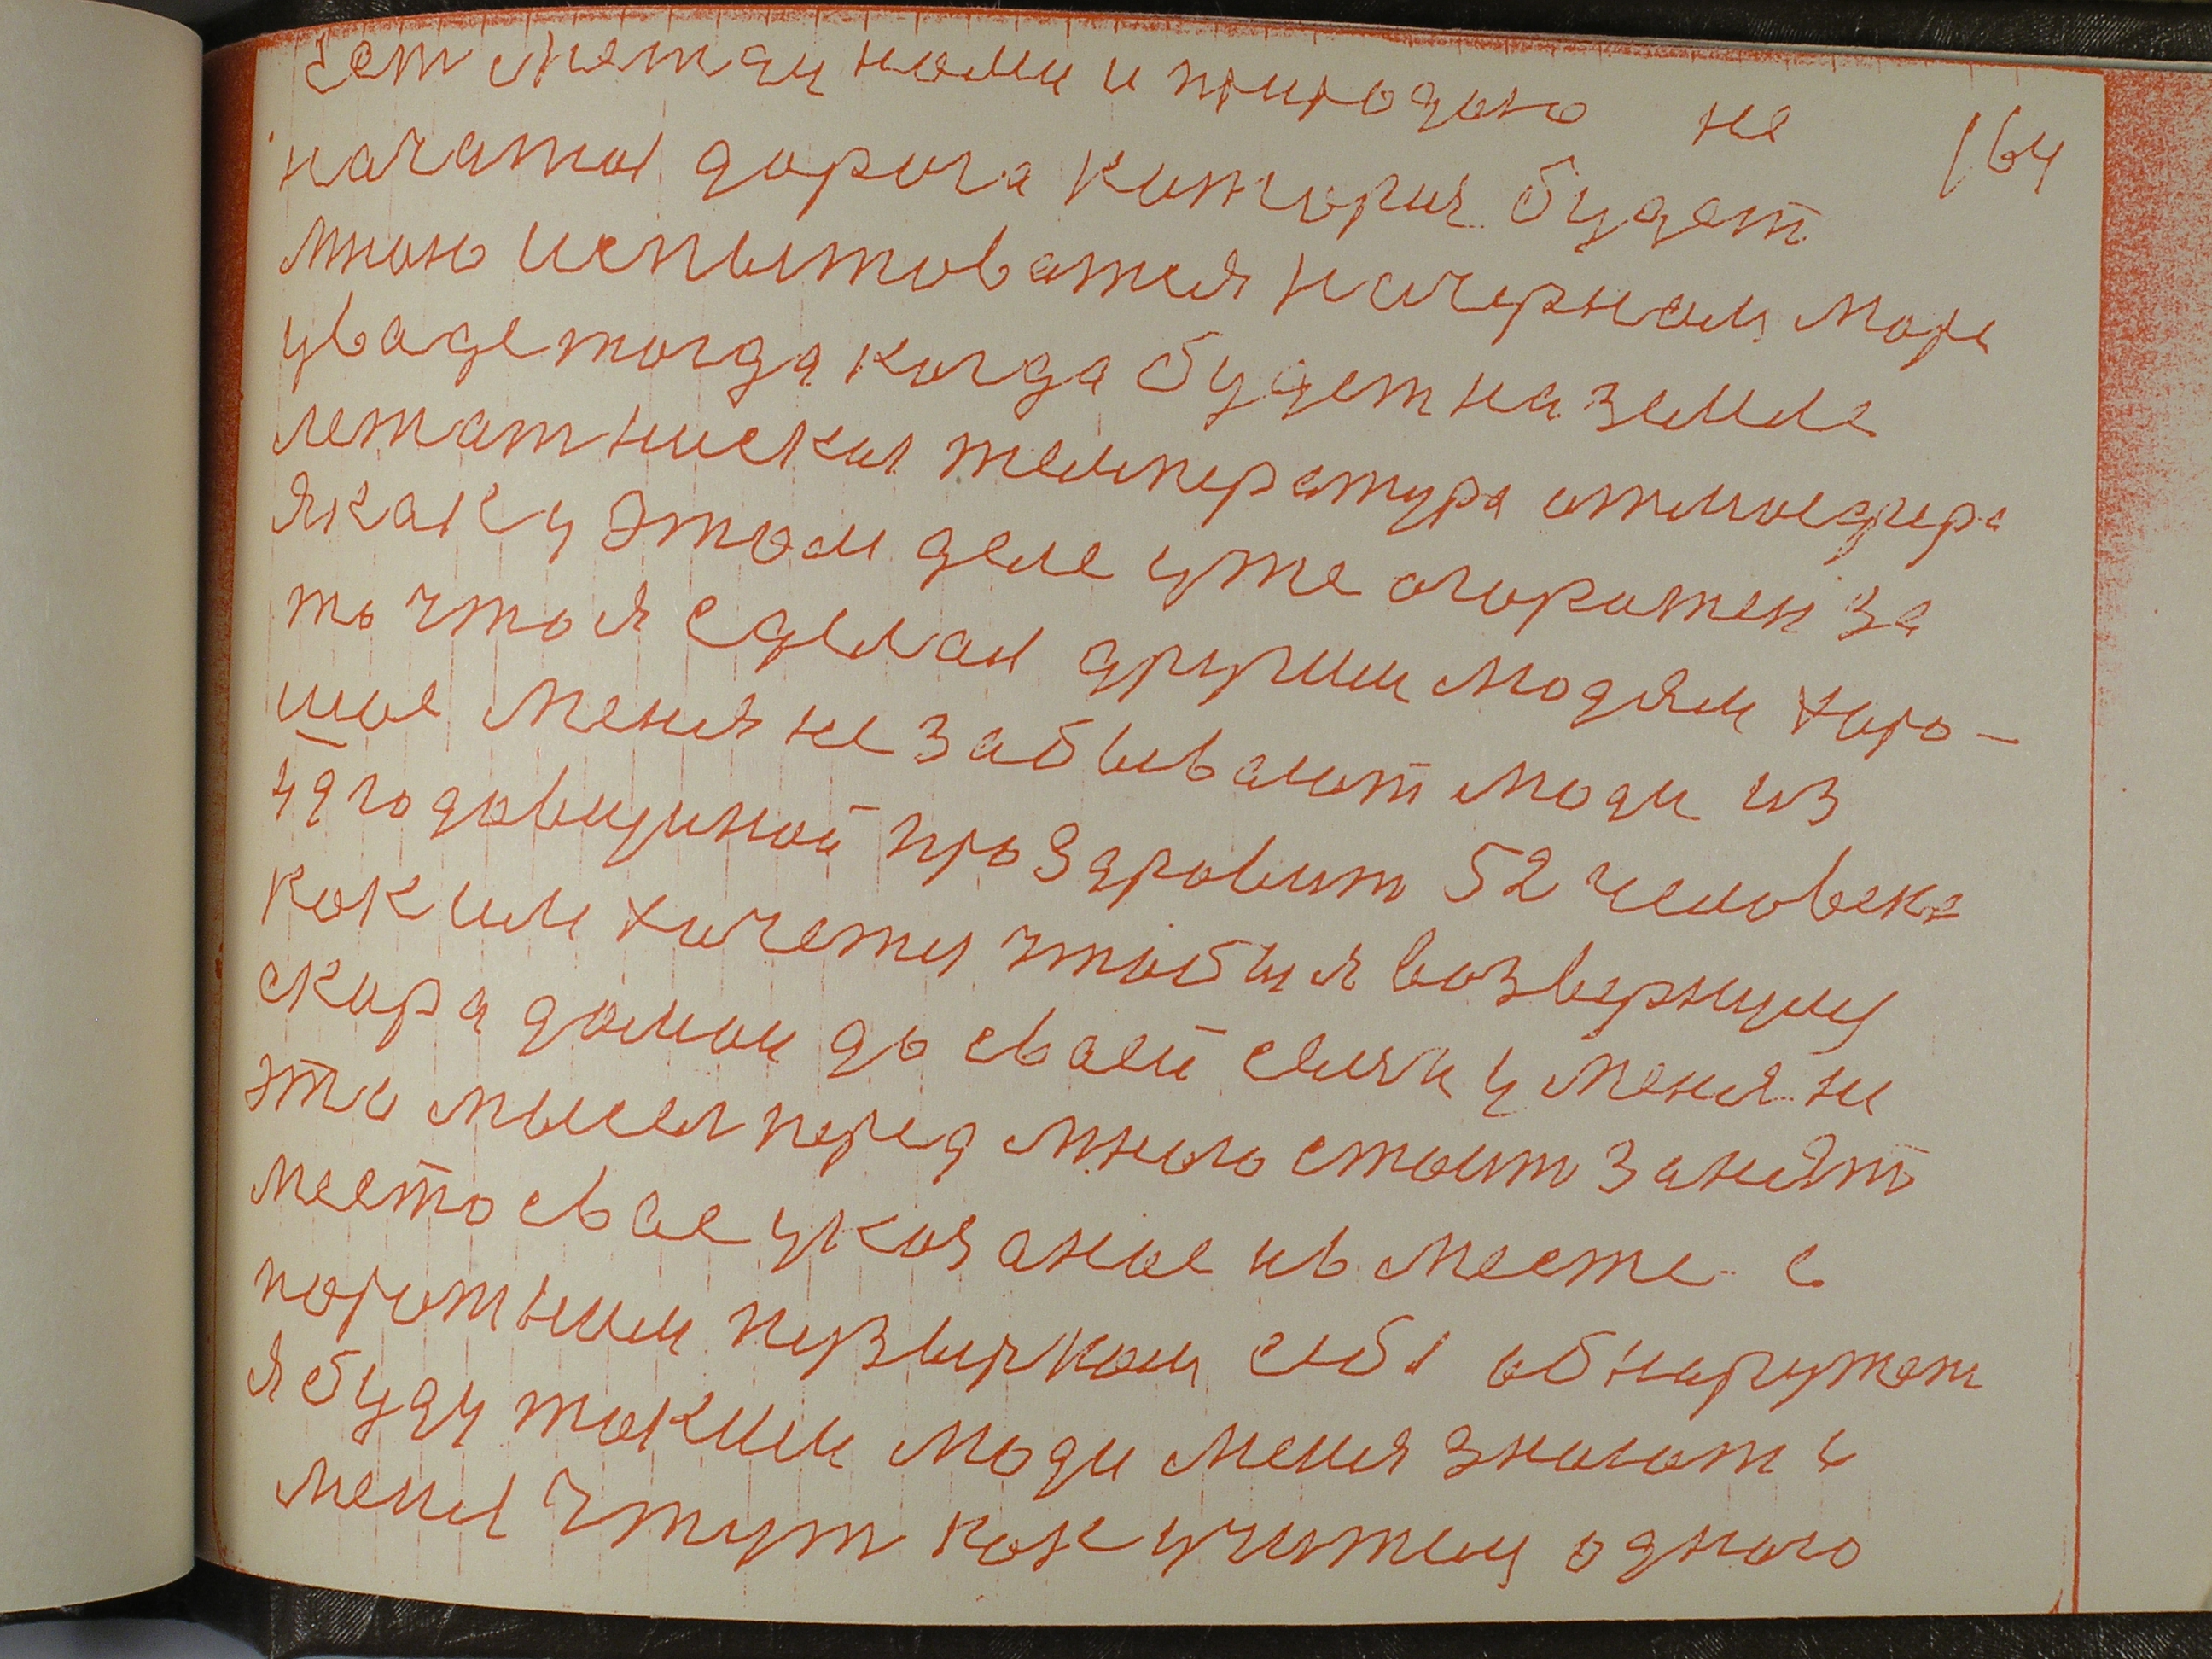 ест метду нами и природаю не
начатая дорога каторая будет
мною испытоватся начерном море
уваде тогда когда будет на земле
летат ниская температура атмосфера
я как у этом деле уже огоражен за
то что я сделал другим людям харо-
шое меня не забывают люди из
49 годовщиной проздровит 52 человека
как им хочется чтобы я возвернулся
скора домои до сваей семи у меня не
эта мысел перед мною стоит занять
место свае указаное ивместе с
поротним пузырком себя обнаружем
я буду таким люди меня знают и
меня чтут как учителя одного
164